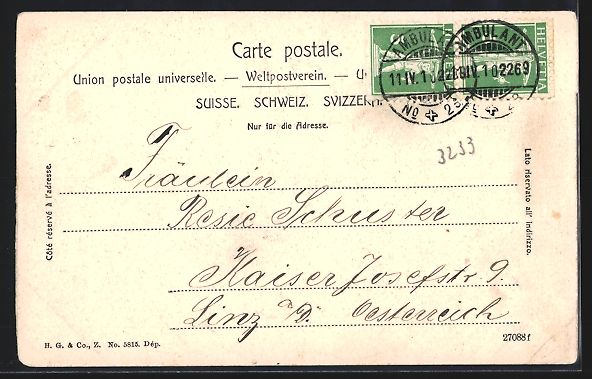 Carte postale.
Union postale universelle. — Weltpostverein. — U
SUISSE. SCHWEIZ. SVIZZER
Nur für die Adresse.
AMBULANT
11.IV.10
No 2
AMBULANT
IV.10-2269
No 2
HELVETIA
3233
Fräulein
Resie Schuster
Kaiser Josefstr 9.
Linz a/D. Oesterreich
Côté réservé à l'adresse.
Lato riservato all' indirizzo.
H. G. & Co., Z. No. 5815. Dép.
27088f